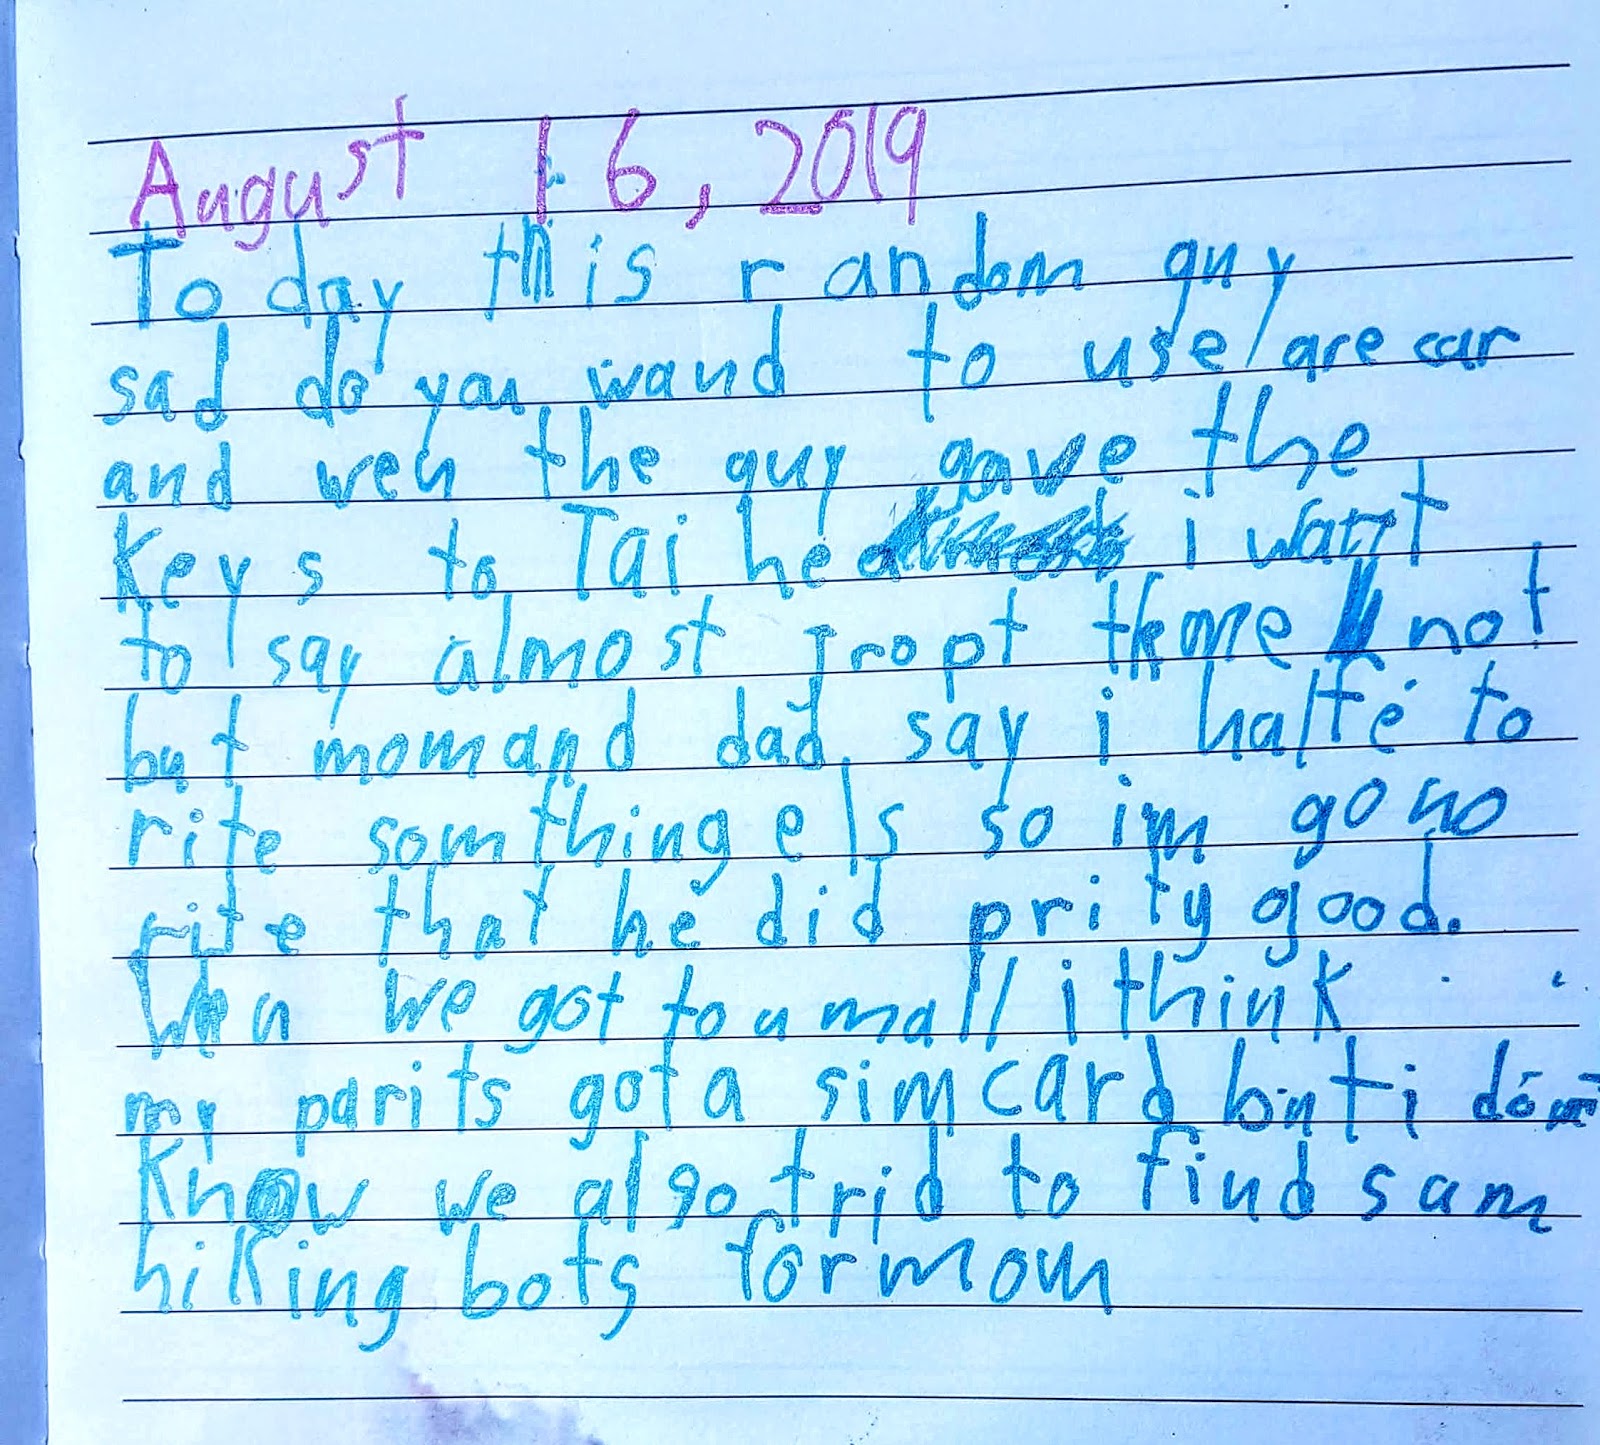 August 16, 2019
Today this random guy
sad do you wand to use are car
and wen the guy gave the
Keys to Tai he i want
to say almost not
but mom and dad say i haffe to
rite somthing els so im gono
rite that he did prity good.
Wen we got to a mall i think
my parits got a simcard but i don
Know we also trid to find sam
hiking bots for mom